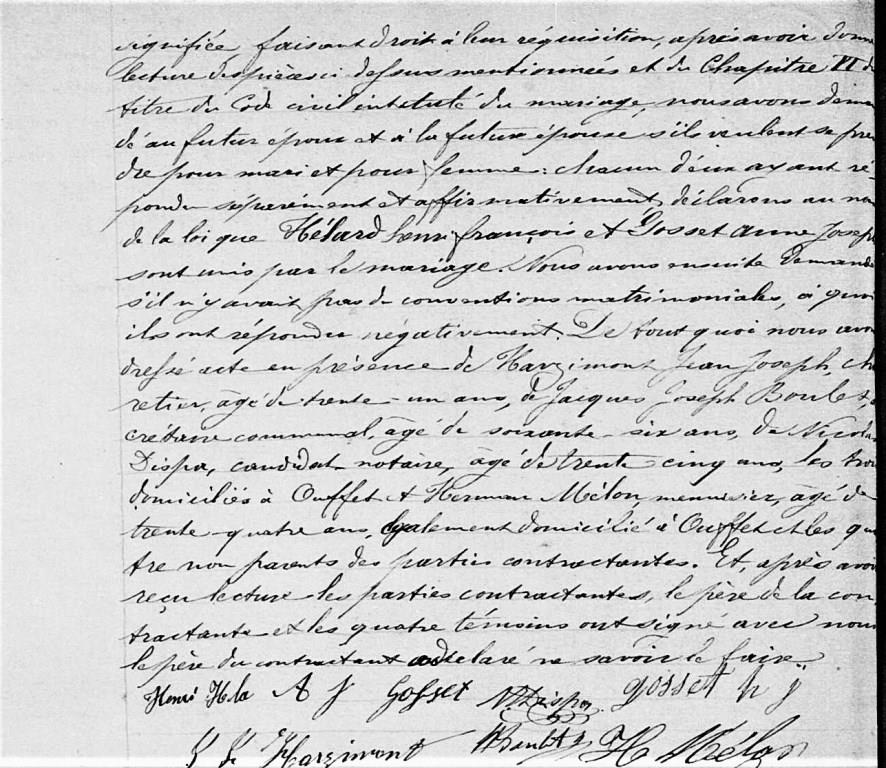 signifiée, faisant droit à leur réquisition, après avoir donné
lecture des pièces ci dessus mentionnées et du Chapitre VI du
titre du Code civil intitulé du mariage, nous avons deman
dé au futur époux et à la future épouse s'ils veulent se pren
dre pour mari et pour femme: chacun d'eux ayant ré-
pondu séparément et affirmativement, déclarons au nom
de la loi que Hélard henri françois et Gosset Anne Joseph
sont unis par le mariage. Nous avons ensuite demandé
s'il n'y avait pas de conventions matrimoniales, à quoi
ils ont répondu négativement. De tout quoi nous avons
dressé acte en présence de Harzimont Jean Joseph, cha
retier, âgé de trente-un ans, de Jacques Joseph Boulet,
crétaire communal, âgé de soixante-six ans, de Nicolas
Dispa, candidat notaire, âgé de trente cinq ans, les trois
domiciliés à Ouffet et Herman Mélon, menuisier, âgé de
trente-quatre ans, également domicilié à Ouffet et les qua
tre non parents des parties contractantes. Et, après avoir
reçu lecture les parties contractantes, le père de la con
tractante et les quatre témoins ont signé avec nous
le père du contractant a déclaré ne savoir le faire
Henri Hela A J Gosset N Dispa gosset h j
J J Harzimont Boulet H Mélon